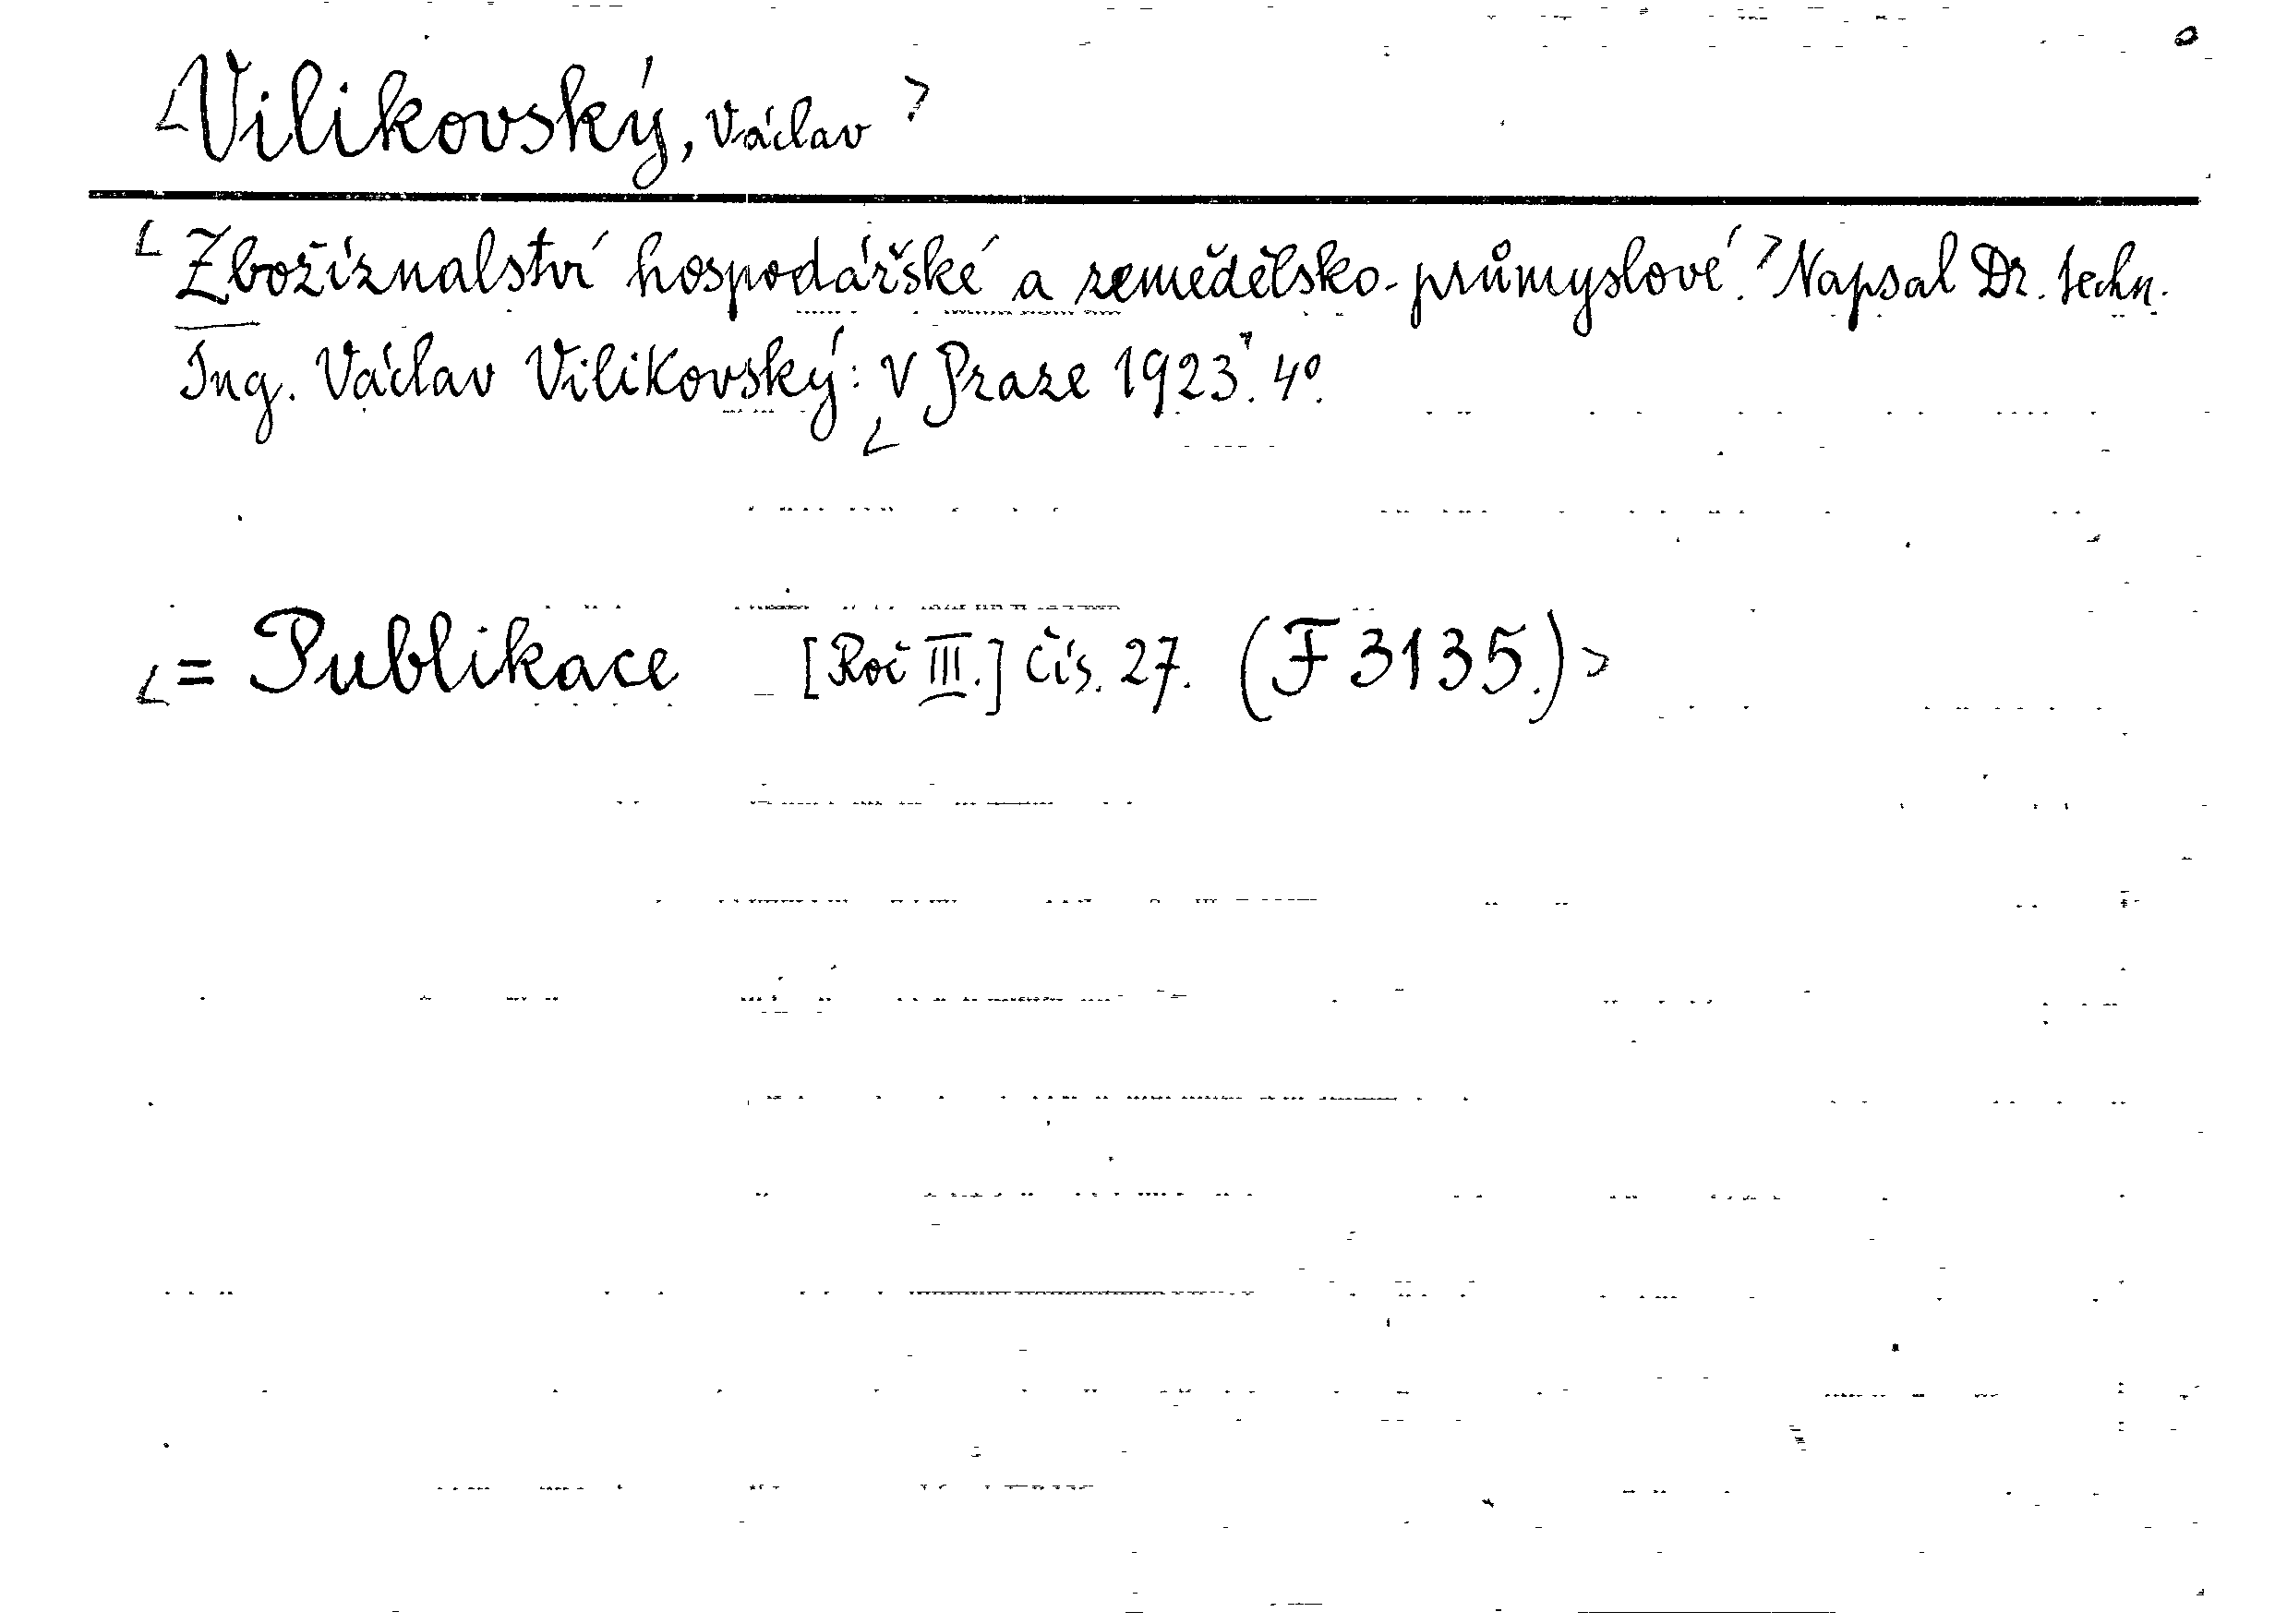 <Vilikovský, Václav>
<Zbožíznalství hospodářské a zemědělsko-průmyslové.> Napsal Dr. techn.
Ing. Václav Vilikovský: <V Praze 1923.> 4º.
<= Publikace [Roč III.] Čís. 27. (F 3135.)>